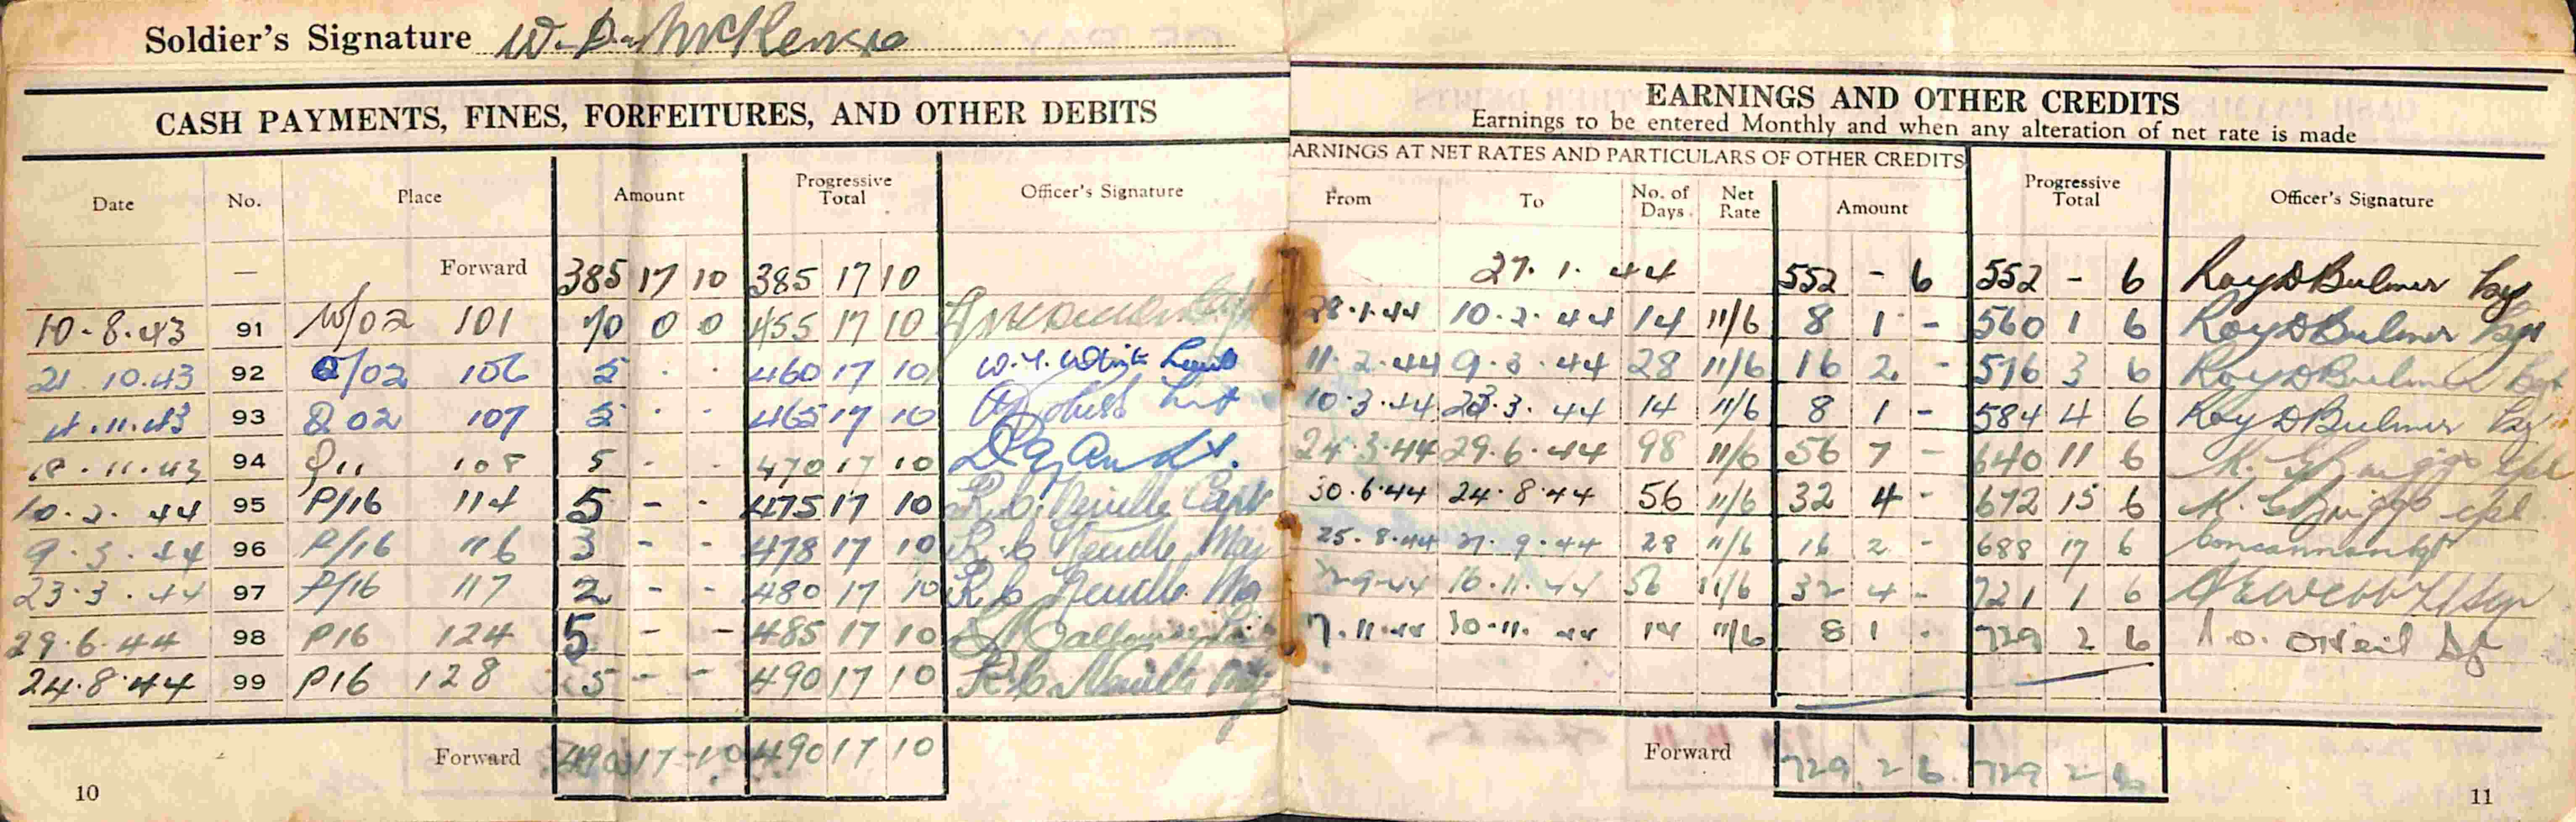 Soldier's Signature W. D. McKenzie
CASH PAYMENTS, FINES, FORFEITURES, AND OTHER DEBITS
Date No. Place Amount Progressive Total Officer's Signature
— Forward 385 17 10 385 17 10
10-8.43 91 W/02 101 70 0 0 455 17 10
21.10.43 92 Q/02 106 5 · · 460 17 10 W. Y. White Lieut
4.11.43 93 Q02 107 5 · · 465 17 10
18.11.43 94 108 5 - - 470 17 10
10.2.44 95 P/16 114 5 - - 475 17 10 R. C. Neville Capt
9.3.44 96 P/16 116 3 - - 478 17 10 R. C. Neville Maj
23.3.44 97 P/16 117 2 - - 480 17 10 R C Neville Maj
29.6.44 98 P16 124 5 - - 485 17 10
24.8.44 99 P16 128 5 - - 490 17 10 R C Neville Maj
Forward 490 17 -10 490 17 10
10
EARNINGS AND OTHER CREDITS
Earnings to be entered Monthly and when any alteration of net rate is made
ARNINGS AT NET RATES AND PARTICULARS OF OTHER CREDITS
From To No. of Days. Net Rate Amount Progressive Total Officer's Signature
27.1.44 552 - 6 552 - 6 Roy D Bulmer
28.1.44 10.2.44 14 11/6 8 1 - 560 1 6 Roy D Bulmer
11.2.44 9.3.44 28 11/6 16 2 - 576 3 6 Roy D Bulmer
10.3.44 23.3.44 14 11/6 8 1 - 584 4 6 Roy D Bulmer
24.3.44 29.6.44 98 11/6 56 7 - 640 11 6 K. G Briggs Cpl
30.6.44 24.8.44 56 11/6 32 4 - 672 15 6 K. G Briggs Cpl
25.8.44 21.9.44 28 11/6 16 2 - 688 17 6 Concannon Sgt
9-44 16.11.44 56 11/6 32 4 - 721 1 6
11.44 30.11.44 14 11/6 8 1 - 729 2 6 O'Neil
Forward 729 2 6 729 2 6
11